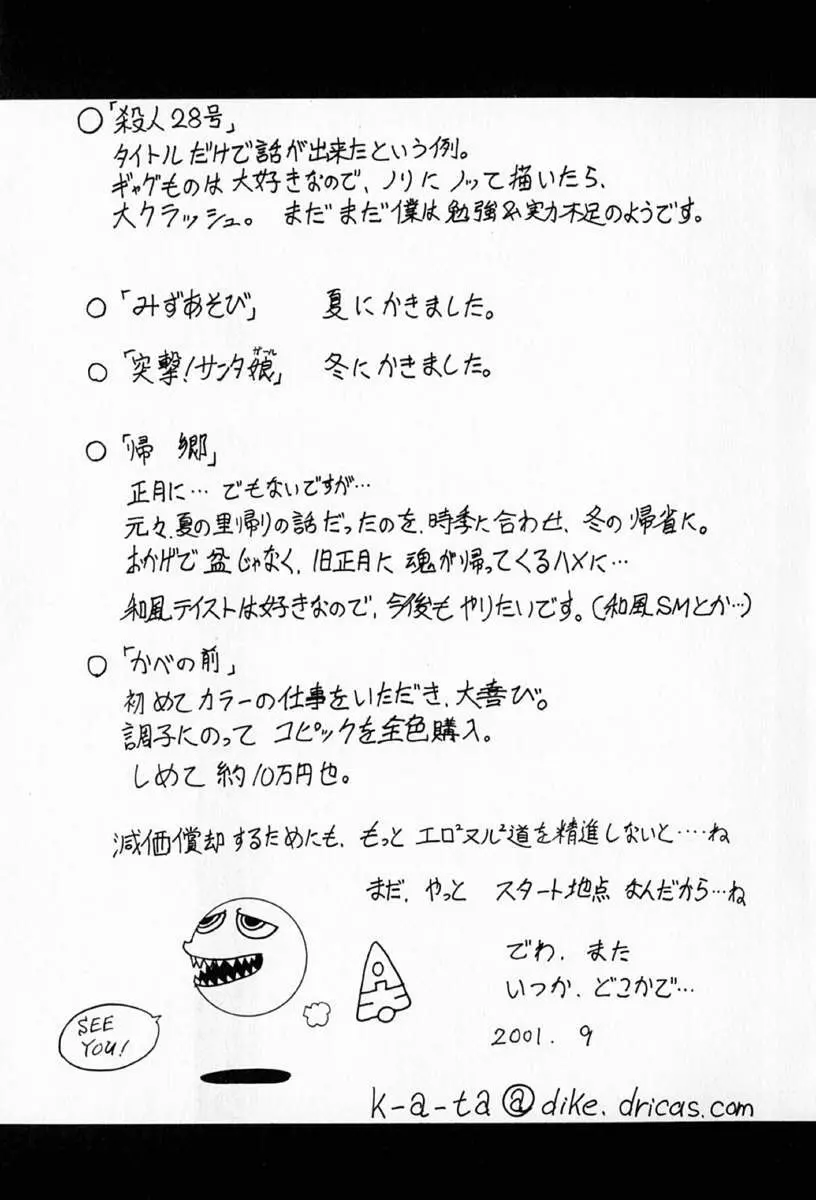 ○「殺人28号」
タイトルだけで話が出来たという例。
ギャグものは大好きなので、ノリにノッて描いたら、
大クラッシュ。 まだまだ僕は勉強&実力不足のようです。
○「みずあそび」 夏にかきました。
○「突撃!サンタ娘」 冬にかきました。
○「帰郷」
正月に…でもないですが…
元々、夏の里帰りの話だったのを、時季に合わせ、冬の帰省に。
おかげで盆じゃなく、旧正月に魂が帰ってくるハメに…
和風テイストは好きなので、今後もやりたいです。(和風SMとか…)
○「かべの前」
初めてカラーの仕事をいただき、大喜び。
調子にのって コピックを全色購入。
しめて 約10万円也。
減価償却するためにも、もっと エロ²ヌル²道を精進しないと‥‥ね
まだ、やっと スタート地点 なんだから…ね
でわ、また
いつか、どこかで…
2001. 9
SEE
YOU!
k-a-ta@dike.dricas.com